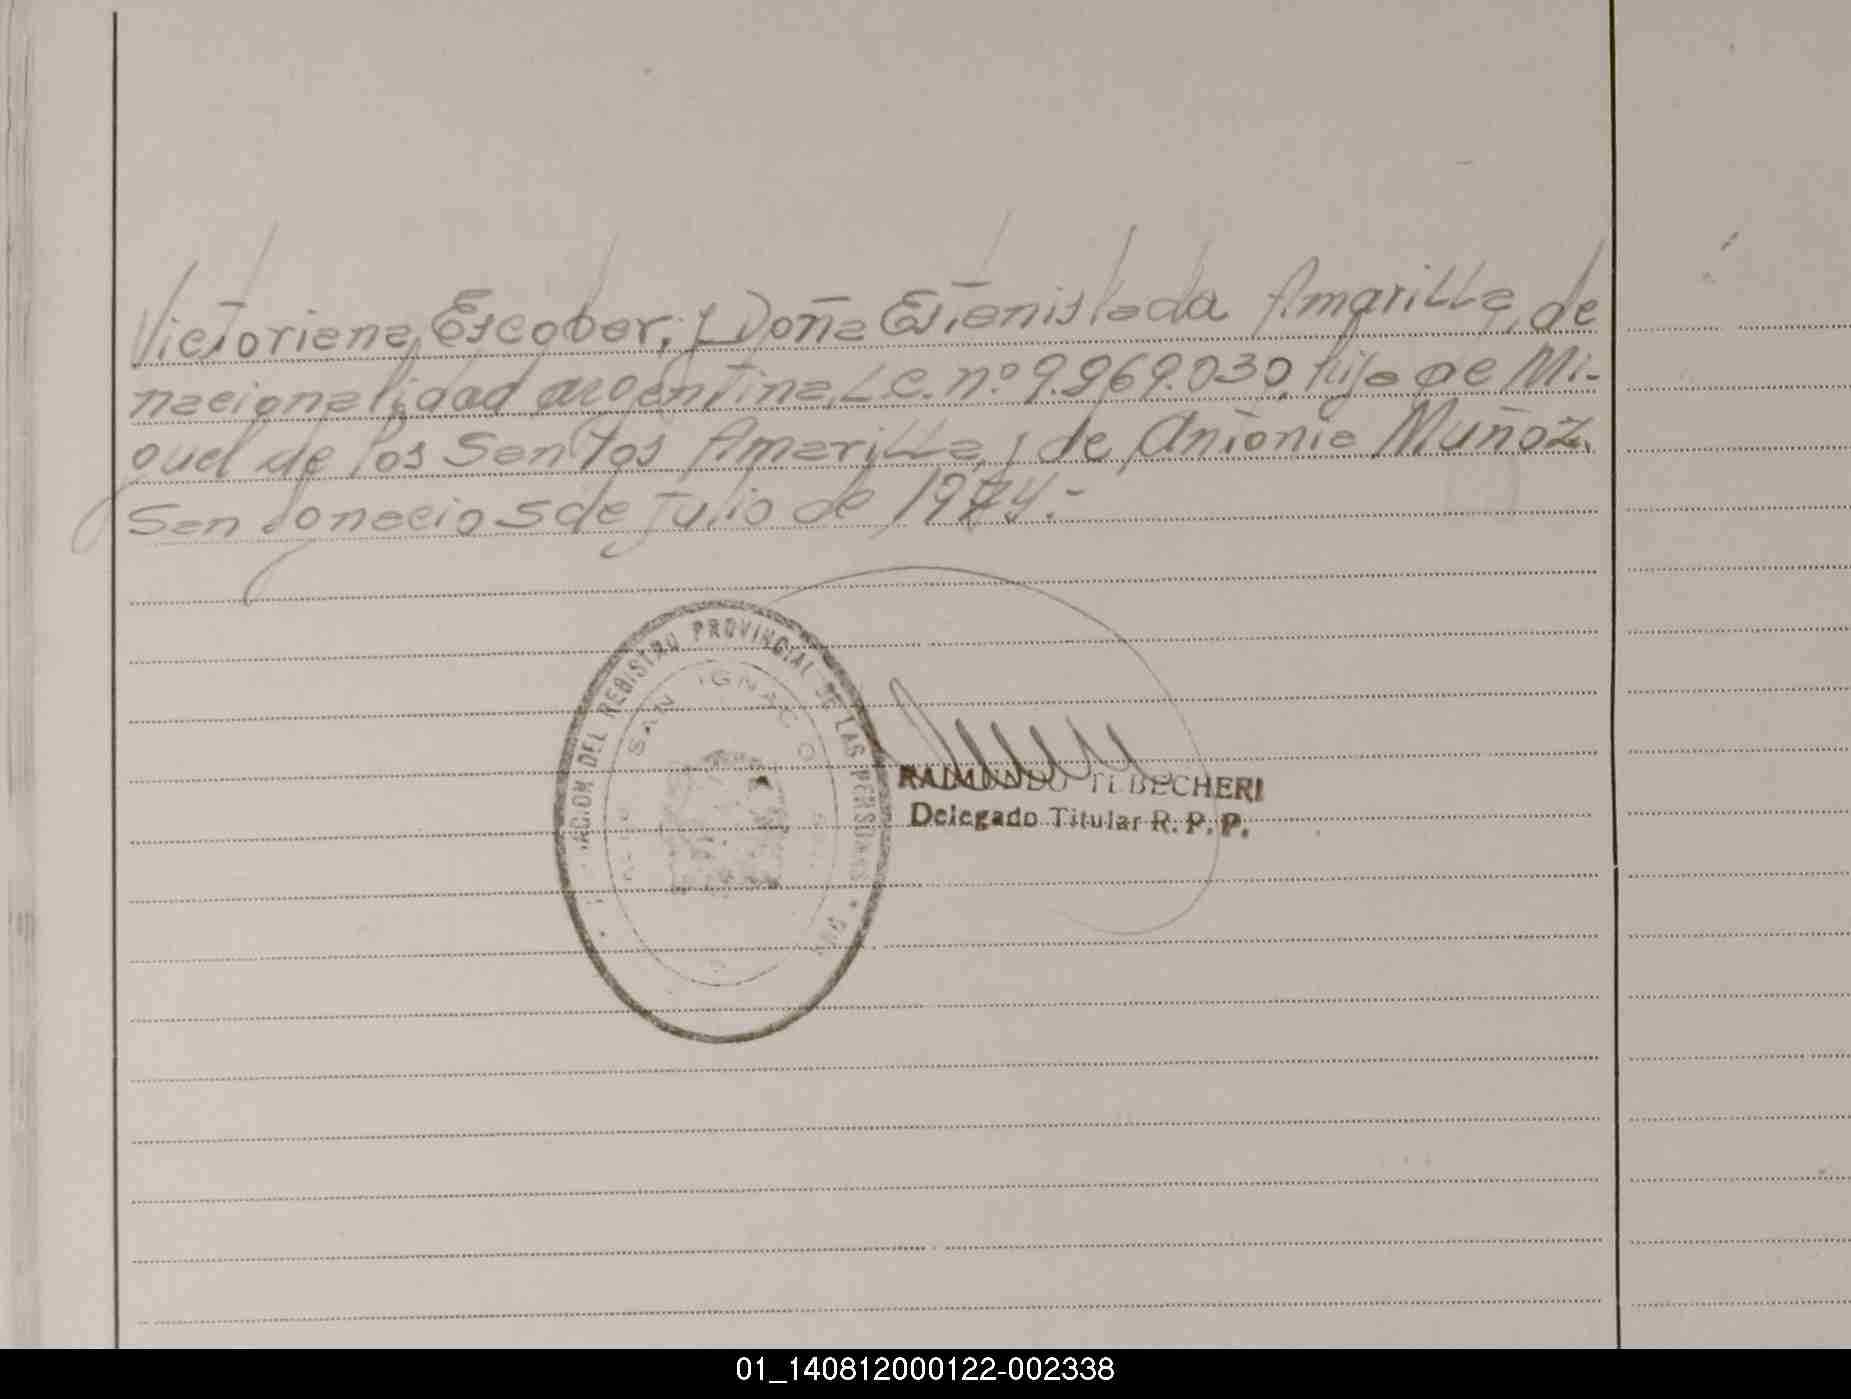 Victoriana Escobar, y Doña Estanislada Amarilla, de
nacionalidad argentina, L.C. nº 9.969.030, hija de Mi-
guel de los Santos Amarilla, y de Antonia Muñoz.
San Ignacio 5 de julio de 1974.-
DEL REGISTRO PROVINCIAL DE LAS PERSONAS
SAN IGNACIO
RAIMUNDO
Delegado Titular R. P. P.
01_140812000122-002338